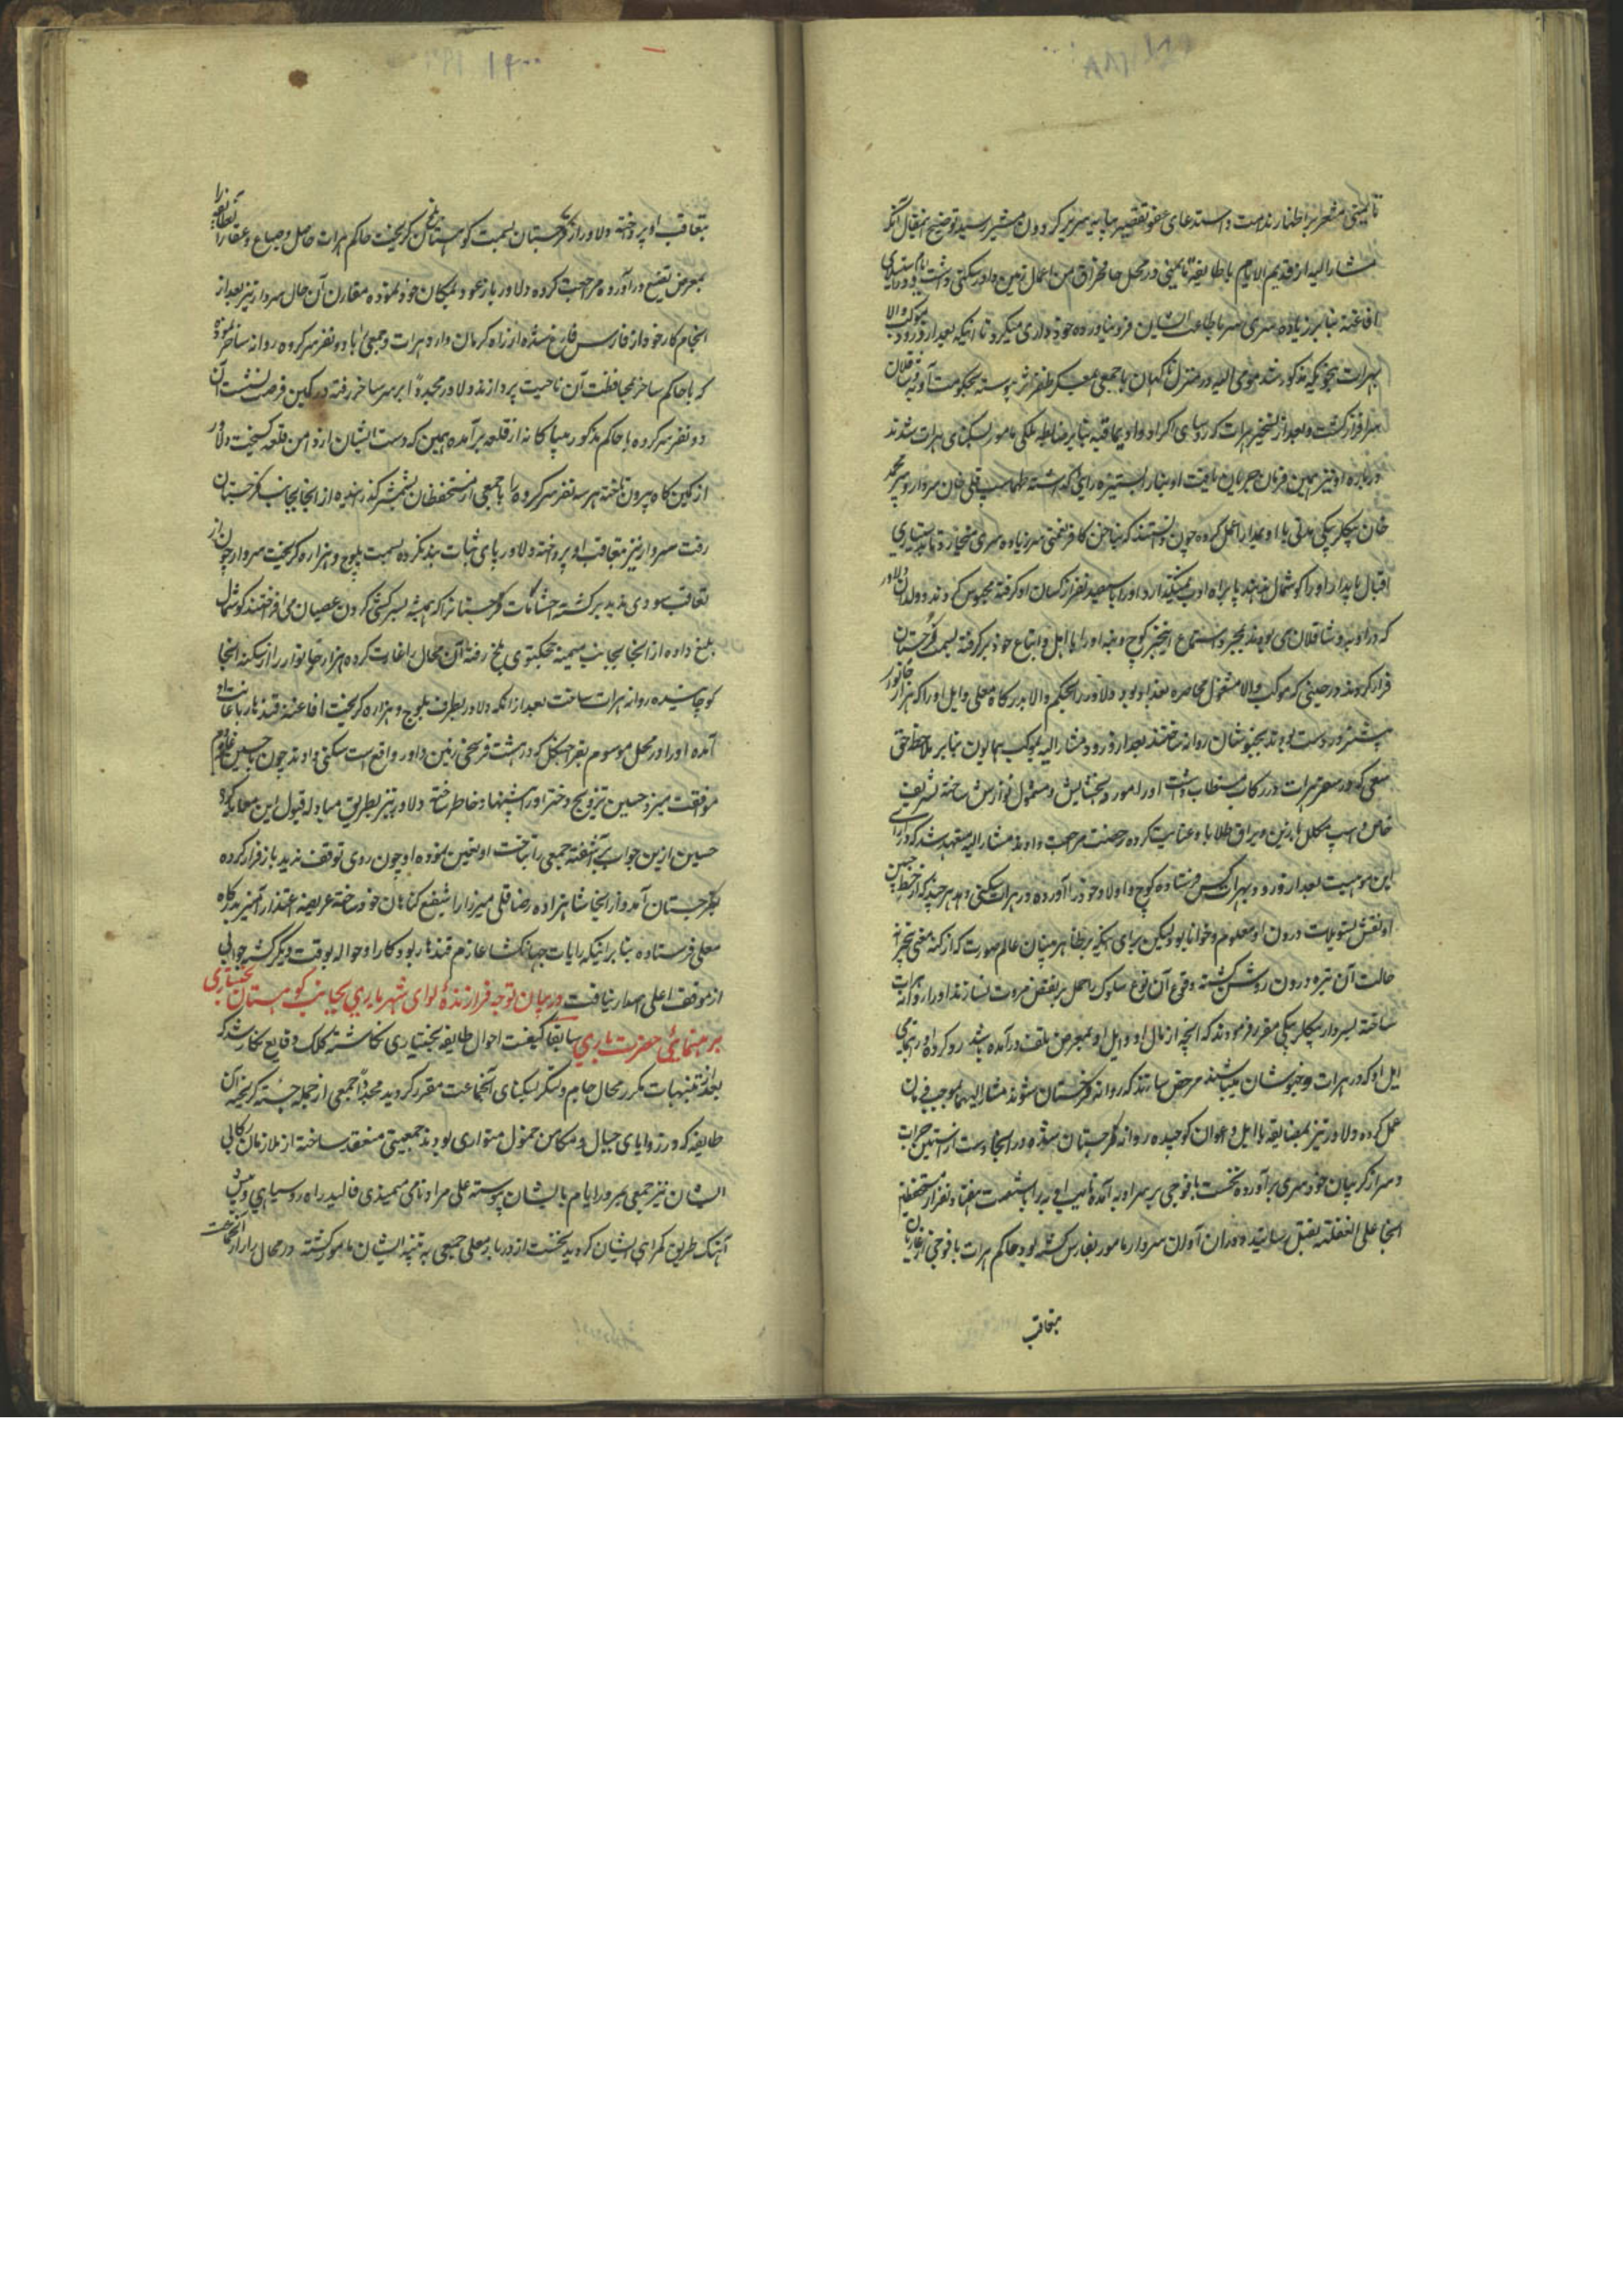 تایمنی مشعر بر اظهار ندامت و استدعای عفو تقصیر بپایه سریر گردون مسیر رسید توضیح این مقال آنکه
مشارالیه از قدیم الایام با طایفه تایمنی در محل من اعمال زمین داور سکنی داشت
افاغنه بنابر زیاده سری سر باطاعت ایشان فرو نیاورده خودداری میکرد تا اینکه بعد از ورود موکب والا
بهرات بنحویکه مذکور شد مومی الیه در منزل ناگهان با جمعی بمعسکر ظفر اثر پیوسته بحکومت اوبه و شاقلان
سرافراز گشت و بعد از تسخیر هرات که روسای اکراد و اویماقیه بنابر ضابطه ملکی مامور بسکنای هرات شدند
درباره او نیز همین فرمان جریان یافت او بنا را بستیزه رایی گذاشته طهماسب قلی خان سردار و پیر محمد
خان بیگلربیگی مدتی با او بمدارا عمل کرده چون دانستند که ناخن کافرنعمتی سر زیاده سری میخارد تا بدستیاری
اقبال پایدار او را گوشمال ندهند پا براه ادب نمیگذارد او را با سیصد نفر از کسان او گرفته محبوس کردند و ولدان دلاور
که در اوبه و شاقلان می بودند بمجرد استماع این خبر کوچ و بنه او را با اهل و اتباع خود برگرفته بسمت غرجستان
فرار کردند در حینی که موکب والا مشغول محاصره بغداد بود دلاور را بحکم والا بدرگاه معلی و ایل او را که هزار خانوار
پیشتر در دست بودند بجبوشان روانه ساختند بعد از ورود مشارالیه بموکب همایون بنابر ملاحظه حق
سعی که در سفر هرات در رکاب مستطاب داشت او را مورد بخشایش و مشمول نوازش ساخته تشریف
خاص و اسپ مکلل با زین و یراق طلا باو عنایت کرده رخصت مراجعت دادند مشارالیه متعهد شد که در ازای
این موهبت بعد از ورود بهرات کس فرستاده کوچ و اولاد خود را آورده در هرات سکنی دهد هر چند که از خط جبین
او نقش تسویلات درون او معلوم و خوانا بود لیکن برای اینکه بر ظاهر بینان عالم صورت که از کنه معنی بیخبرند
حالت آن تیره درون روشن گشته وقوع آن نوع سلوک را حمل بر نقض مروت نسازند او را روانه هرات
ساخته بسردار و بیگلربیگی مقرر فرمودند که آنچه از مال او و ایل او بمعرض تلف درآمده باشد رد کرده و تمامی
ایل او که در هرات و جبوشان میباشند مرخص سازند که روانه غرجستان شوند مشارالیهما بموجب فرمان
عمل کرده دلاور نیز بمضایقه با ایل و اعوان کوچیده روانه غرجستان شده در آنجا دست از آستین جرات
و سر از گریبان خودسری برآورده نخست با فوجی بر سر اوبه آمده نایب اوبه را با شصت هفتاد نفر از مستحفظین
آنجا علی الغفله بقتل رسانیده در آن اوان سردار مامور بفارس گشته بود حاکم هرات با فوجی از غازیان
بتعاقب
بتعاقب او پرداخته دلاور از غرجستان بسمت کوهستان گریخت حاکم هرات حاصل و ضیاع و عقار آن طایفه را
بمعرض تضییع درآورده مراجعت کرده دلاور باز عود بمکان خود نموده مقارن آن حال سردار نیز بعد از
انجام کار خود از فارس فارغ شده از راه کرمان وارد هرات و جمعی را با دو نفر سرکرده روانه ساخر نموده
که با حاکم ساخر بمحافظت آن ناحیت پردازند دلاور مجدداً بر سر ساخر رفته در کمین فرصت نشست آن
دو نفر سرکرده با حاکم مذکور بیباکانه از قلعه برآمده همین که دست ایشان از دامن قلعه گسیخت دلاور
از کمین گاه بیرون تاخته هر سه نفر سرکرده را با جمعی از مستحفظان بشمشیر گذرانیده از آنجا بجانب غرجستان
رفت سردار نیز بتعاقب او پرداخته دلاور پای ثبات بند نکرده بسمت بلوچ و هزاره گریخت سردار چون از
تعاقب سودی ندید برگشته احشامات غرجستان را که همیشه بسرکشی گردن عصیان می افراختند گوشمال
بلیغ داده از آنجا بجانب میمنه چیچکتوی بلخ رفته آن محال را غارت کرده هزار خانوار را از سکنه آنجا
کوچانیده روانه هرات ساخت بعد از آنکه دلاور بطرف بلوچ و هزاره گریخت افاغنه قندهار باعانت او
آمده او را در محل موسوم بقراجنگل که در هشت فرسخی زمین داور واقع است سکنی دادند چون حسین غلجه دم
موافقت میزد حسین تزویج دختر او را پیشنهاد خاطر ساخته دلاور نیز بطریق مبادله قبول این معنی کرد
حسین ازین جواب برآشفته جمعی را بتاخت او تعیین نموده او چون روی توقف ندید باز فرار کرده
بغرجستان آمد و از آنجا شاهزاده رضاقلی میرزا را شفیع گناهان خود ساخته عریضه اعتذار آمیز بدرگاه
معلی فرستاده بنابر اینکه رایات جهانگشا عازم قندهار بود کار او حواله بوقت دیگر گشته جوابی
از موقف اعلی اصدار نیافت در بیان توجه فرازنده لوای شهریاری بجانب کوهستان بختیاری
برهنمائی حضرت باری سابقا کیفیت احوال طایفه بختیاری نگاشته کلک وقایع نگار شد که
بعد از تنبیهات مکرر محال جام و لنگر بسکنای آنجماعت مقرر گردید مجدداً جمعی از جمله جسته گریخته آن
طایفه که در زوایای جبال و مکامن خمول متواری بودند جمعیتی منعقد ساخته از ملازمان رکابی
ایشان نیز جمعی بمرور ایام بایشان پیوسته علی مراد نامی ممیوندی قالید راه روسیاهی و پیش
آهنگ طریق گمراهی ایشان گردید نخست از دربار معلی جمعی به تنبیه ایشان مامور گشته در محال برارود آنجماعت